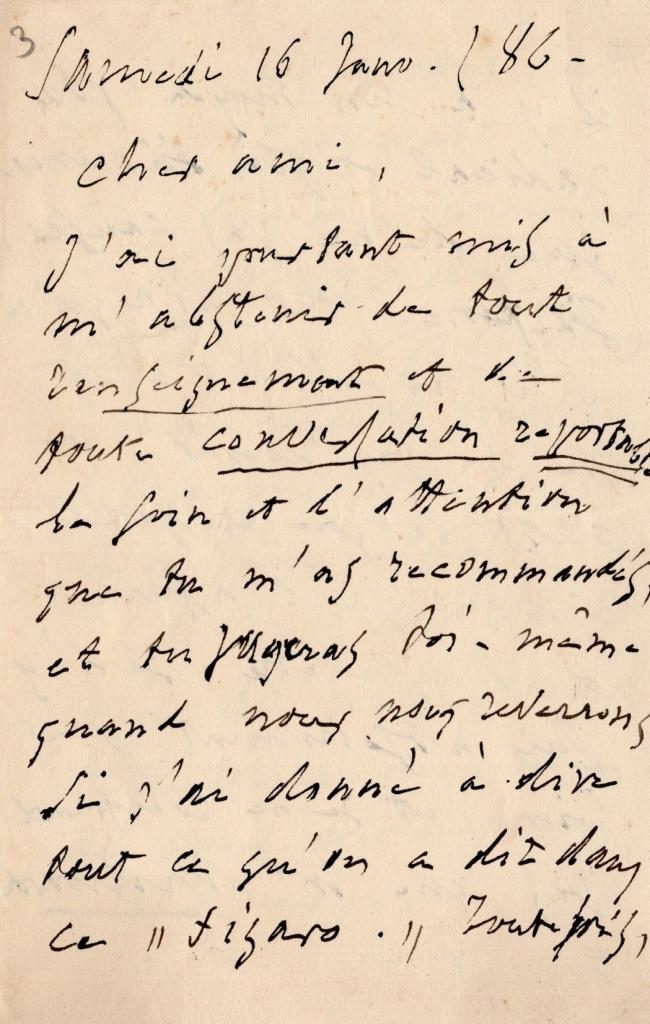 3
Samedi 16 Janv. / 86 -
Cher ami,
J'ai pourtant mis à
m'abstenir de tout
renseignement et de
toute conversation reportable
le soin et l'attention
que tu m'as recommandés,
et tu jugeras toi-même
quand nous nous reverrons
si j'ai donné à dire
tout ce qu'on a dit dans
ce "Figaro." Toutefois,